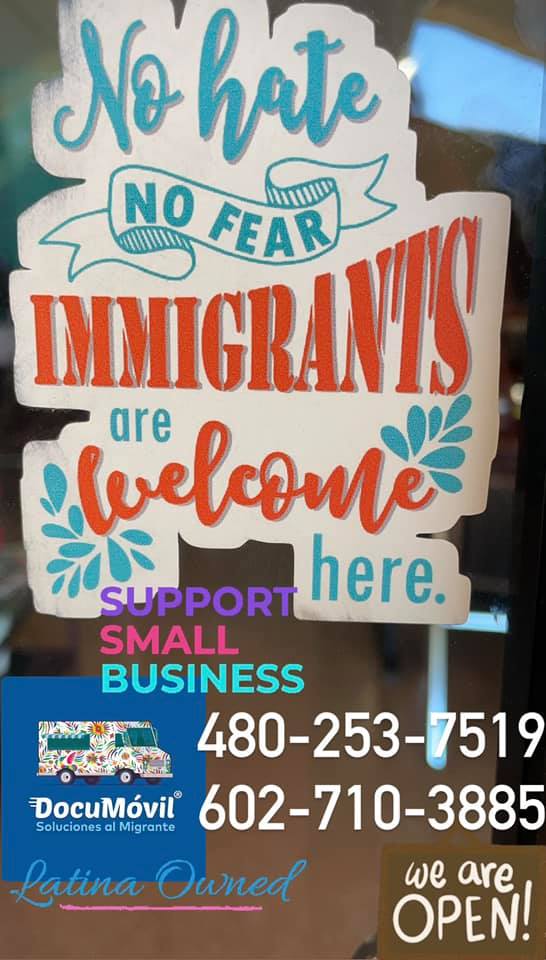 No hate
NO FEAR
IMMIGRANTS
are
welcome
here.
SUPPORT
SMALL
BUSINESS
480-253-7519
602-710-3885
DocuMóvil®
Soluciones al Migrante
Latina Owned
we are
OPEN!